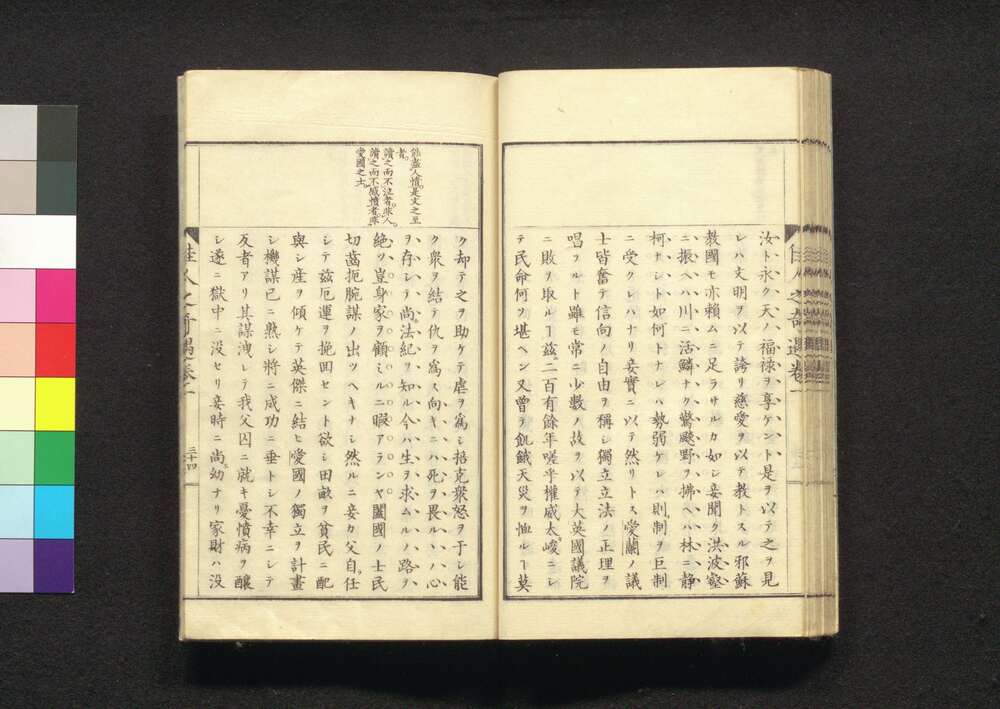 汝ト永ク天ノ福禄ヲ享ケントヽ是ヲ以テ之ヲ見
レハ文明ヲ以テ誇リ慈愛ヲ以テ教トスル邪蘇
教國モ亦賴ムニ足ラサルカ如シ妾聞ク洪波壑
ニ振ヘハ川ニ活鱗ナク驚飈野ヲ拂ヘハ林ニ靜
柯ナシト如何トナレハ勢弱ケレハ則制ヲ巨制
ニ受クレハナリ妾實ニ以テ然リトス愛蘭ノ議
士皆奮テ信向ノ自由ヲ稱シ獨立立法ノ正理ヲ
唱フルト雖モ常ニ少數ノ故ヲ以テ大英國議院
ニ敗ヲ取ルヿ茲二百有餘年嗟乎權威太峻ニシ
テ民命何ソ堪ヘン又曾テ飢餓天災ヲ恤ルヿ莫
佳人之奇遇卷一
能盡人情是文之至
者
讀之而不泣者非人
讀之而不感憤者非
愛國之士
ク却テ之ヲ助ケテ虐ヲ爲シ掊克衆怒ヲ于シ能
ク衆ヲ結テ仇ヲ爲ス向キニハ死ヲ畏ルヽノ心
ヲ存シテ尚法紀ヲ知ル今ハ生ヲ求ムルノ路ヲ
絶ツ豈身家ヲ顧ミルニ暇アランヤ闔國ノ士民
切齒扼腕謀ノ出ツヘキナシ然ルニ妾カ父自任
シテ茲厄運ヲ挽回セント欲シ田畝ヲ貧民ニ配
與シ産ヲ傾ケテ英傑ニ結ヒ愛國ノ獨立ヲ計畫
シ機謀已ニ熟シ將ニ成功ニ垂トシ不幸ニシテ
反者アリ其謀洩レテ我父囚ニ就キ憂憤病ヲ釀
シ遂ニ獄中ニ没セリ妾時ニ尚幼ナリ家財ハ没
佳人之奇遇卷一
三十四